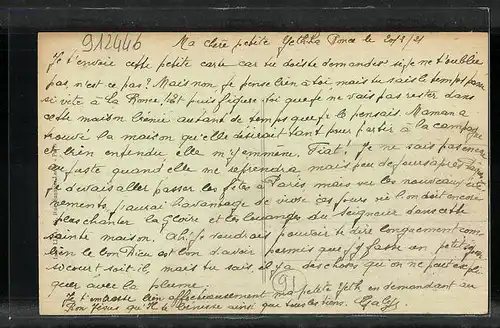 912446
Ma chère petite Yetk La Ronce le 20/3/21
Je t'envoie cette petite carte car tu dois te demander si je ne t'oublie
pas, n'est ce pas? Mais non, je pense bien à toi mais tu sais le temps passe
si vite à La Ronce! Et puis figure toi que je ne vais pas rester dans
cette maison bénie autant de temps que je le pensais. Maman a
trouvé la maison qu'elle désirait tant pour partir à la campagne
et bien entendu elle m'y emmène. Fiat! Je ne sais pas encore
au juste quand elle me reprendra mais peu de jours après
je devais aller passer les fêtes à Paris mais vu les nouveaux évé
nements, j'aurai l'avantage de vivre ces jours où l'on doit encore
plus chanter la Gloire et les louanges du Seigneur dans cette
sainte maison. Ah! je voudrais pouvoir te dire longuement com
bien le bon Dieu est bon d'avoir permis que j'y fasse un petit séjour
si court soit-il, mais tu sais, il y a des choses qu'on ne peut expli
quer avec la plume.
91
Je t'embrasse bien affectueusement ma petite Yetk en demandant au
Bon Jésus qu'Il te bénisse ainsi que tous les tiens.